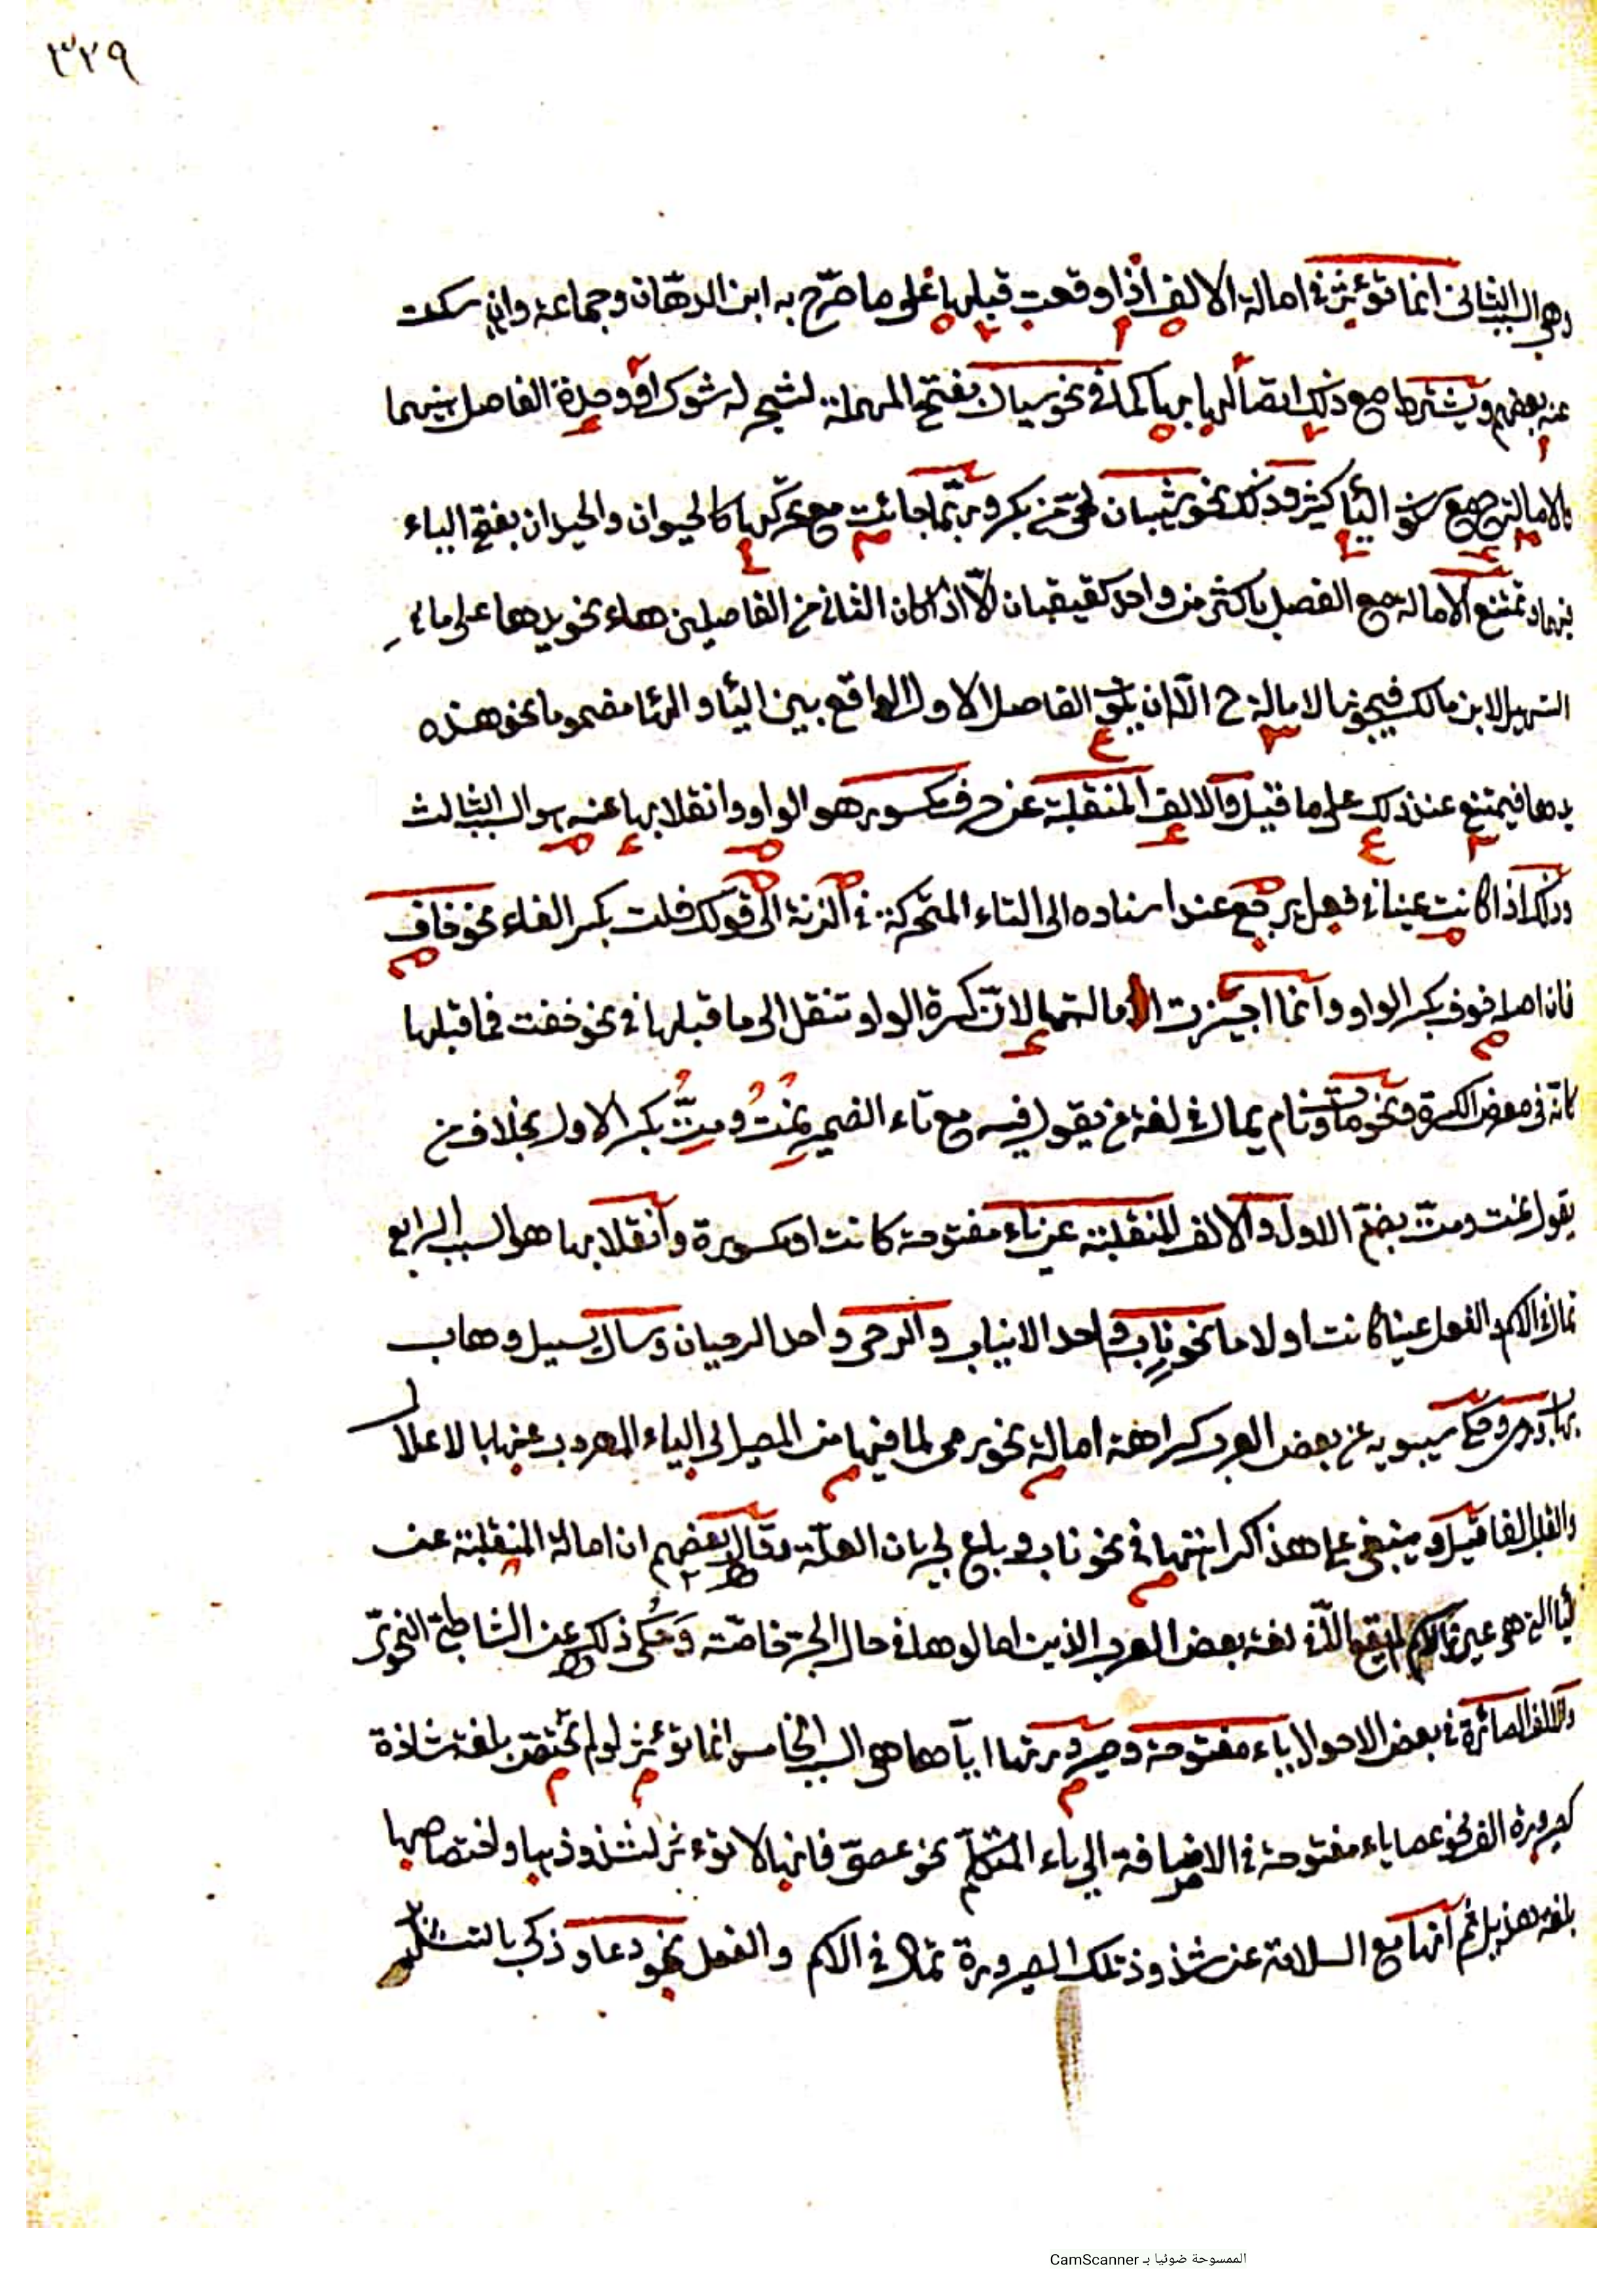 ٣٢٩
وهي السبب الثاني انما تؤثر في امالة الالف اذا وقعت قبلها على ما صرّح به ابن الدهّان وجماعة وان سكت
عنه بعضهم ويشترط مع ذلك اتصالها بها كما في نحو سيال بفتح المهملة لشجر له شوك او وحدة الفاصل بينهما
والامالة مع سكون الياء كثير وذلك نحو شيبان لحيّ من بكر وربّما جائت مع تحركها كالحيوان والحيدان بفتح الياء
فيهما وتمتنع الامالة مع الفصل باكثر من واحد الّا اذا كان الثاني من الفاصلين هاء نحو يدها على ما في
التسهيل لابن مالك فيجوز الامالة ح الّا ان يكون الفاصل الاول الواقع بين الياء والهاء مضموما نحو هذه
يدها فيمتنع عند ذلك على ما قيل والالف المنقلبة عن حرف مكسور هو الواو وانقلابها عنه هو السبب الثالث
وذلك اذا كانت عينا في فعل يرجع عند اسناده الى التاء المتحركة في الزنة الى قولك فلت بكسر الفاء نحو خاف
فان اصله خوف بكسر الواو وانما اجيزت الامالة لانّ كسرة الواو تنقل الى ما قبلها في نحو خفت فما قبلها
كانه في معرض الكسرة ونحو مات ونام يمال في لغة من يقول فيه مع تاء الضمير نمت ومتّ بكسر الاول بخلاف من
يقول نمت ومتّ بضمّ الاول والالف المنقلبة عن ياء مفتوحة كانت او مكسورة وانقلابها هو السبب الرابع
تمال في الاسم والفعل عينا كانت او لاما نحو ناب واحد الانياب والرحى واحد الرحيان وسال يسيل وهاب
يهاب ورمى وحكى سيبويه عن بعض العرب كراهة امالة نحو رمى لما فيها من المصير الى الياء المهروب عنها بالاعلال
والقلب الفا قيل وينبغي على هذا كراهتها في نحو ناب وباع لجريان العلة وقال بعضهم ان امالة المنقلبة عن
الياء التي هي عين في الاسم لم يقع الّا في لغة بعض العرب الذين امالوها في حال الجر خاصّة وحكى ذلك عن الشاطبي النحوي
والالف الصائرة في بعض الاحوال ياء مفتوحة وصيرورتها اياها هو السبب الخامس انما تؤثر لو لم تختص بلغة شاذة
كصيرورة الف نحو عصا ياء مفتوحة في الاضافة الى ياء المتكلم نحو عصيّ فانها لا تؤثر لشذوذها واختصاصها
بلغة هذيل ثم انها مع السلامة عن شذوذ تلك الصيرورة تمال في الاسم والفعل نحو دعا وذكى بالتشديد
الممسوحة ضوئيا بـ CamScanner